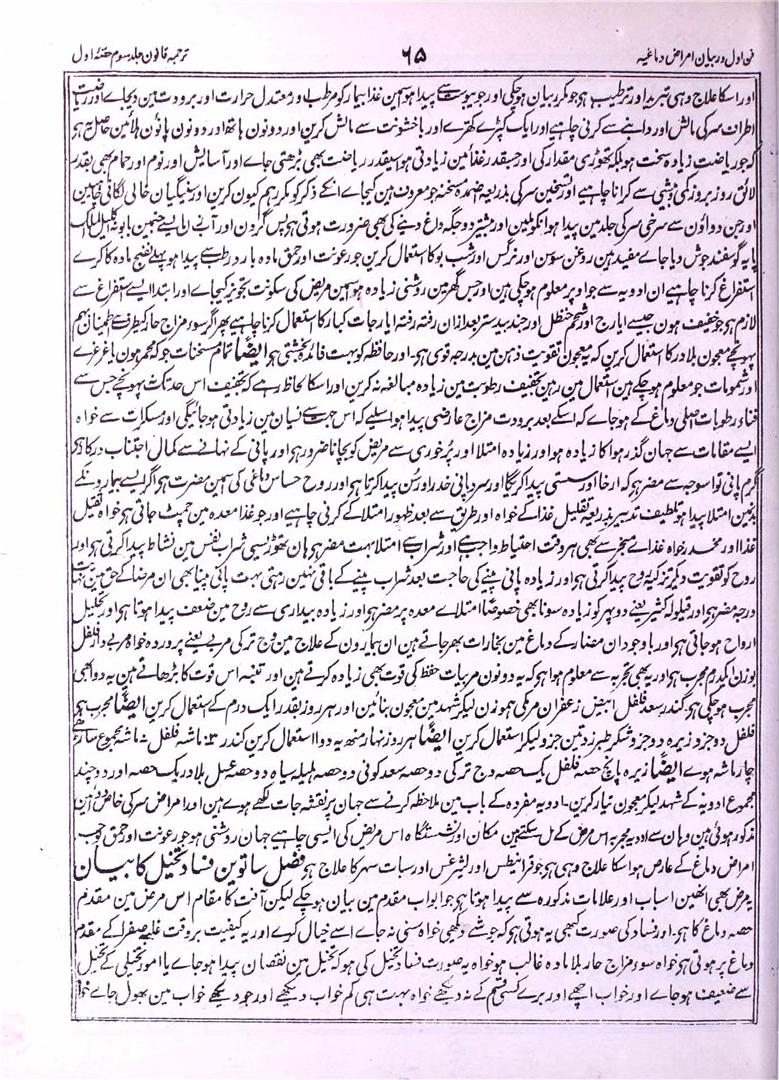 فن اول در بیان امراض دماغیہ ۶۵ ترجمہ قانون جلد سوم حصۂ اول
اور اسکا علاج وہی تبرید اور ترطیب ہی جو مکرر بیان ہوچکی اور جو یبوست سے پیدا ہو اسمین غذا بیمار کو مرطب اور معتدل حرارت اور برودت مین دیجاے اور ریاضت
اطراف سر کی مالش اور دابنے سے کرنی چاہیے اور ایک کپڑے کھرے اور باخشونت سے مالش کرین اور دونون ہاتھ اور دونون پانون ہلائین حاصل یہ ہی
کہ جو ریاضت زیادہ سخت ہو بلکہ تھوڑی مقدار کی اور جسقدر غذا مین زیادتی ہو اسیقدر ریاضت بھی بڑھتی جاے اور آسایش اور نوم اور حمام بھی بقدر
لائق روز بروز کمی و بیشی سے کرانا چاہیے اور تسخین سر کی بذریعہ اضمدہ مسخنہ جو معروف ہین کیجاے انکے ذکر کو مکرر ہم کیون کرین اور سینگیان خالی لگانی چاہیین
اور جن دواؤن سے سرخی سر کی جلد مین پیدا ہو انکو ملین اور بیشتر دو جگہ داغ دینے کی بھی ضرورت ہوتی ہو پس گردن اور آب زن ایسے جنمین بابونہ اکلیل الملک
پایہ گوسفند جوش دیا جاے مفید ہین روغن سوسن اور نرگس اور شب بو کا استعمال کرین جو رعونت اور حمق مادہ بارد رطب سے پیدا ہو پہلے نضج مادہ کا کرے
استفراغ کرنا چاہیے ان ادویہ سے جو اوپر معلوم ہوچکی ہین اور جس گھر مین روشنی زیادہ ہو اسمین مریض کی سکونت تجویز کیجاے اور ابتدا ایسے استفراغ سے
لازم ہی جو خفیف ہون جیسے ایارج اور شحم حنظل اور جند بیدستر بعد ازان رفتہ رفتہ ایارجات کبار کا استعمال کرنا چاہیے پھر اگر سوء مزاج حار کیطرف سے طمینان بہم
پہونچے معجون بلادر کا استعمال کرین کہ یہ معجون تقویت ذہن مین بدرجہ قوی ہو۔ اور حافظہ کو بہت فائدہ بخشتی ہو ایضاً تمام مسخنات جو کہ محمر ہون یا غرغرے
اور شمومات جو معلوم ہوچکے ہین استعمال مین رہین تجفیف رطوبت مین زیادہ مبالغہ نہ کرین اور اسکا لحاظ رہے کہ تجفیف اس حد تک نہ پہونچے جس سے
فناء رطوبات اصلی دماغ کے ہوجاے کہ اسکے بعد برودت مزاج عارضی پیدا ہو اسلیے کہ اس جہت سے نسیان مین زیادتی ہوجائیگی اور مسکرات سے خواہ
ایسے مقامات سے جہان گذر ہوا کا زیادہ ہو اور زیادہ امتلا اور پُرخوری سے مریض کو بچانا ضرور ہو اور پانی کے نہانے سے کمال اجتناب درکار ہو
گرم پانی تو اسوجہ سے مضر ہو کہ ارخا اور سستی پیدا کریگا اور سرد پانی خدر اور سُن پیدا کرتا ہو اور روح حساس دماغی کی اسمین مضرت ہو اگر ایسے بیمارونکے
بدنمین امتلا پیدا ہو تلطیف تدبیر بذریعہ تقلیل غذا کے خواہ اور طریق سے بعد ظہور امتلا کے کرنی چاہیے اور جو غذا معدہ مین چمٹ جاتی ہو خواہ ثقیل
غذا اور مخدر خواہ غذاے مبخر سے بھی ہر وقت احتیاط واجب ہے اور شراب سے امتلا بہت مضر ہو ہان تھوڑی سی شراب نفس مین نشاط پیدا کرتی ہو اور
روح کو تقویت دیکر تزکیہ روح پیدا کرتی ہو اور زیادہ پانی پینے کی حاجت بعد شراب پینے کے باقی نہین رہتی بہت پانی پینا بھی ان مرضا کے حق مین نہایت
درجہ مضر ہو اور قیلولہ کثیر یعنے دوپہر کو زیادہ سونا بھی خصوصاً امتلاے معدہ پر مضر ہو اور زیادہ بیداری سے روح مین ضعف پیدا ہوتا ہو اور تحلیل
ارواح ہوجاتی ہو اور باوجود ان مضار کے دماغ مین بخارات بھر جاتے ہین ان بیمارون کے علاج مین وج ترکی مربے یعنے پروردہ خواہ مربے دار فلفل
بوزن ایکدرم مجرب ہو اور یہ بھی تجربہ سے معلوم ہوا ہو کہ یہ دونون مربیات حفظ کی قوت بھی زیادہ کرتے ہین اور تنبہ اس قوت کا بڑھاتے ہین یہ دوا بھی
مجرب ہوچکی ہو کندر سعد فلفل ابیض زعفران مرمکی ہموزن لیکر شہد مین معجون بنائین اور ہر روز بقدر ایک درم کے استعمال کرین ایضاً مجرب ہو
فلفل دو جزو زیرہ دو جزو شکر طبرزد تین جزو لیکر استعمال کرین ایضاً ہر روز نہار منھ یہ دوا استعمال کرین کندر ۳ ماشہ فلفل ۱ ماشہ مجموع ساڑھے
چار ماشہ ہوے ایضاً زیرہ پانچ حصہ فلفل یک حصہ وج ترکی دو حصہ سعد کوفی دو حصہ ہلیلہ سیاہ دو حصہ عسل بلادر یک حصہ اور دو چند
مجموع ادویہ کے شہد لیکر معجون تیار کرین۔ ادویہ مفردہ کے باب مین ملاحظہ کرنے سے جہان پر نقشہ جات لکھے ہوے ہین اور امراض سر کی خاص دوائین
مذکور ہوئی ہین وہان سے ادویہ مجربہ اس مرض کے مل سکتے ہین مکان اور نشستگاہ اس مریض کی ایسی چاہیے جہان روشنی ہو جو رعونت اور حمق بوجہ
امراض دماغ کے عارض ہو اسکا علاج وہی ہو جو قرانیطس اور لیثرغس اور سبات سہر کا علاج ہو فصل ساتوین فساد تخیل کا بیان
یہ مرض بھی انھین اسباب اور علامات مذکورہ سے پیدا ہوتا ہو جو ابواب مقدم مین بیان ہوچکے لیکن آفت کا مقام اس مرض مین مقدم
حصہ دماغ کا ہو۔ اور فساد کی صورت کبھی یہ ہوتی ہو کہ جو شے دیکھی خواہ سنی نہ جاے اسے خیال کرے اور یہ کیفیت بروقت غلبہ صفرا کے مقدم
دماغ پر ہوتی ہو خواہ سوء مزاج حار بلا مادہ غالب ہو خواہ یہ صورت فساد تخیل کی ہو کہ تخیل مین نقصان پیدا ہوجاے یا امور تخیلی کے تخیل
سے ضعیف ہوجاے اور خواب اچھے اور برے کسی قسم کے نہ دیکھے خواہ بہت ہی کم خواب دیکھے اور جو دیکھے خواب مین بھول جاے خواہ